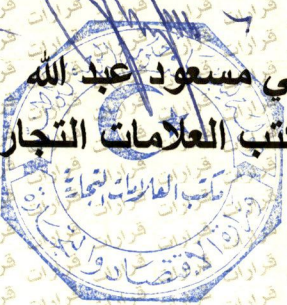 ي مسعود عبد الله
تب العلامات التجار
مكتب العلامات التجارية
وزارة الاقتصاد والتجارة
قرارات